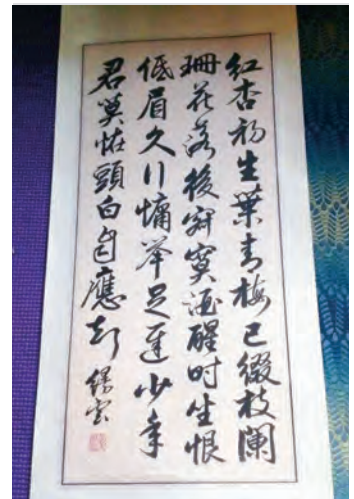 紅杏初生葉青梅已綴枝闌
珊花落後寂寞酒醒时生恨
低眉久行慵举足遲少年
君莫恠頭白自應知